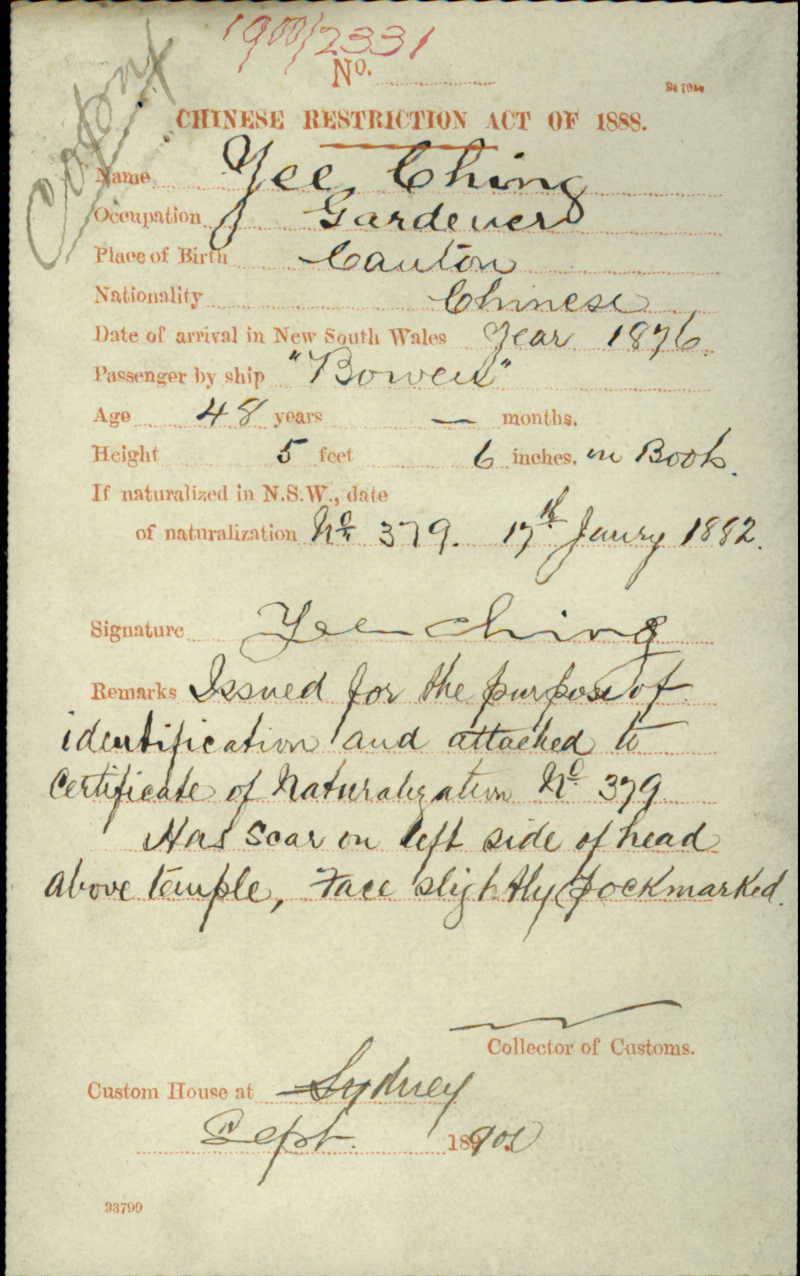 1900/2331
Copy
No.
CHINESE RESTRICTION ACT OF 1888.
Name Yee Ching
Occupation Gardener
Place of Birth Canton
Nationality Chinese
Date of arrival in New South Wales Year 1876.
Passenger by ship "Bowen"
Age 48 years — months.
Height 5 feet 6 inches. in Book.
If naturalized in N.S.W., date
of naturalization No. 379. 17th Janry 1882.
Signature Yee Ching
Remarks Issued for the purpose of
identification and attached to
Certificate of Naturalization No. 379
Has Scar on left side of head
above temple, Face slightly Pockmarked.
Collector of Customs.
Custom House at Sydney
Sept. 1900
93799